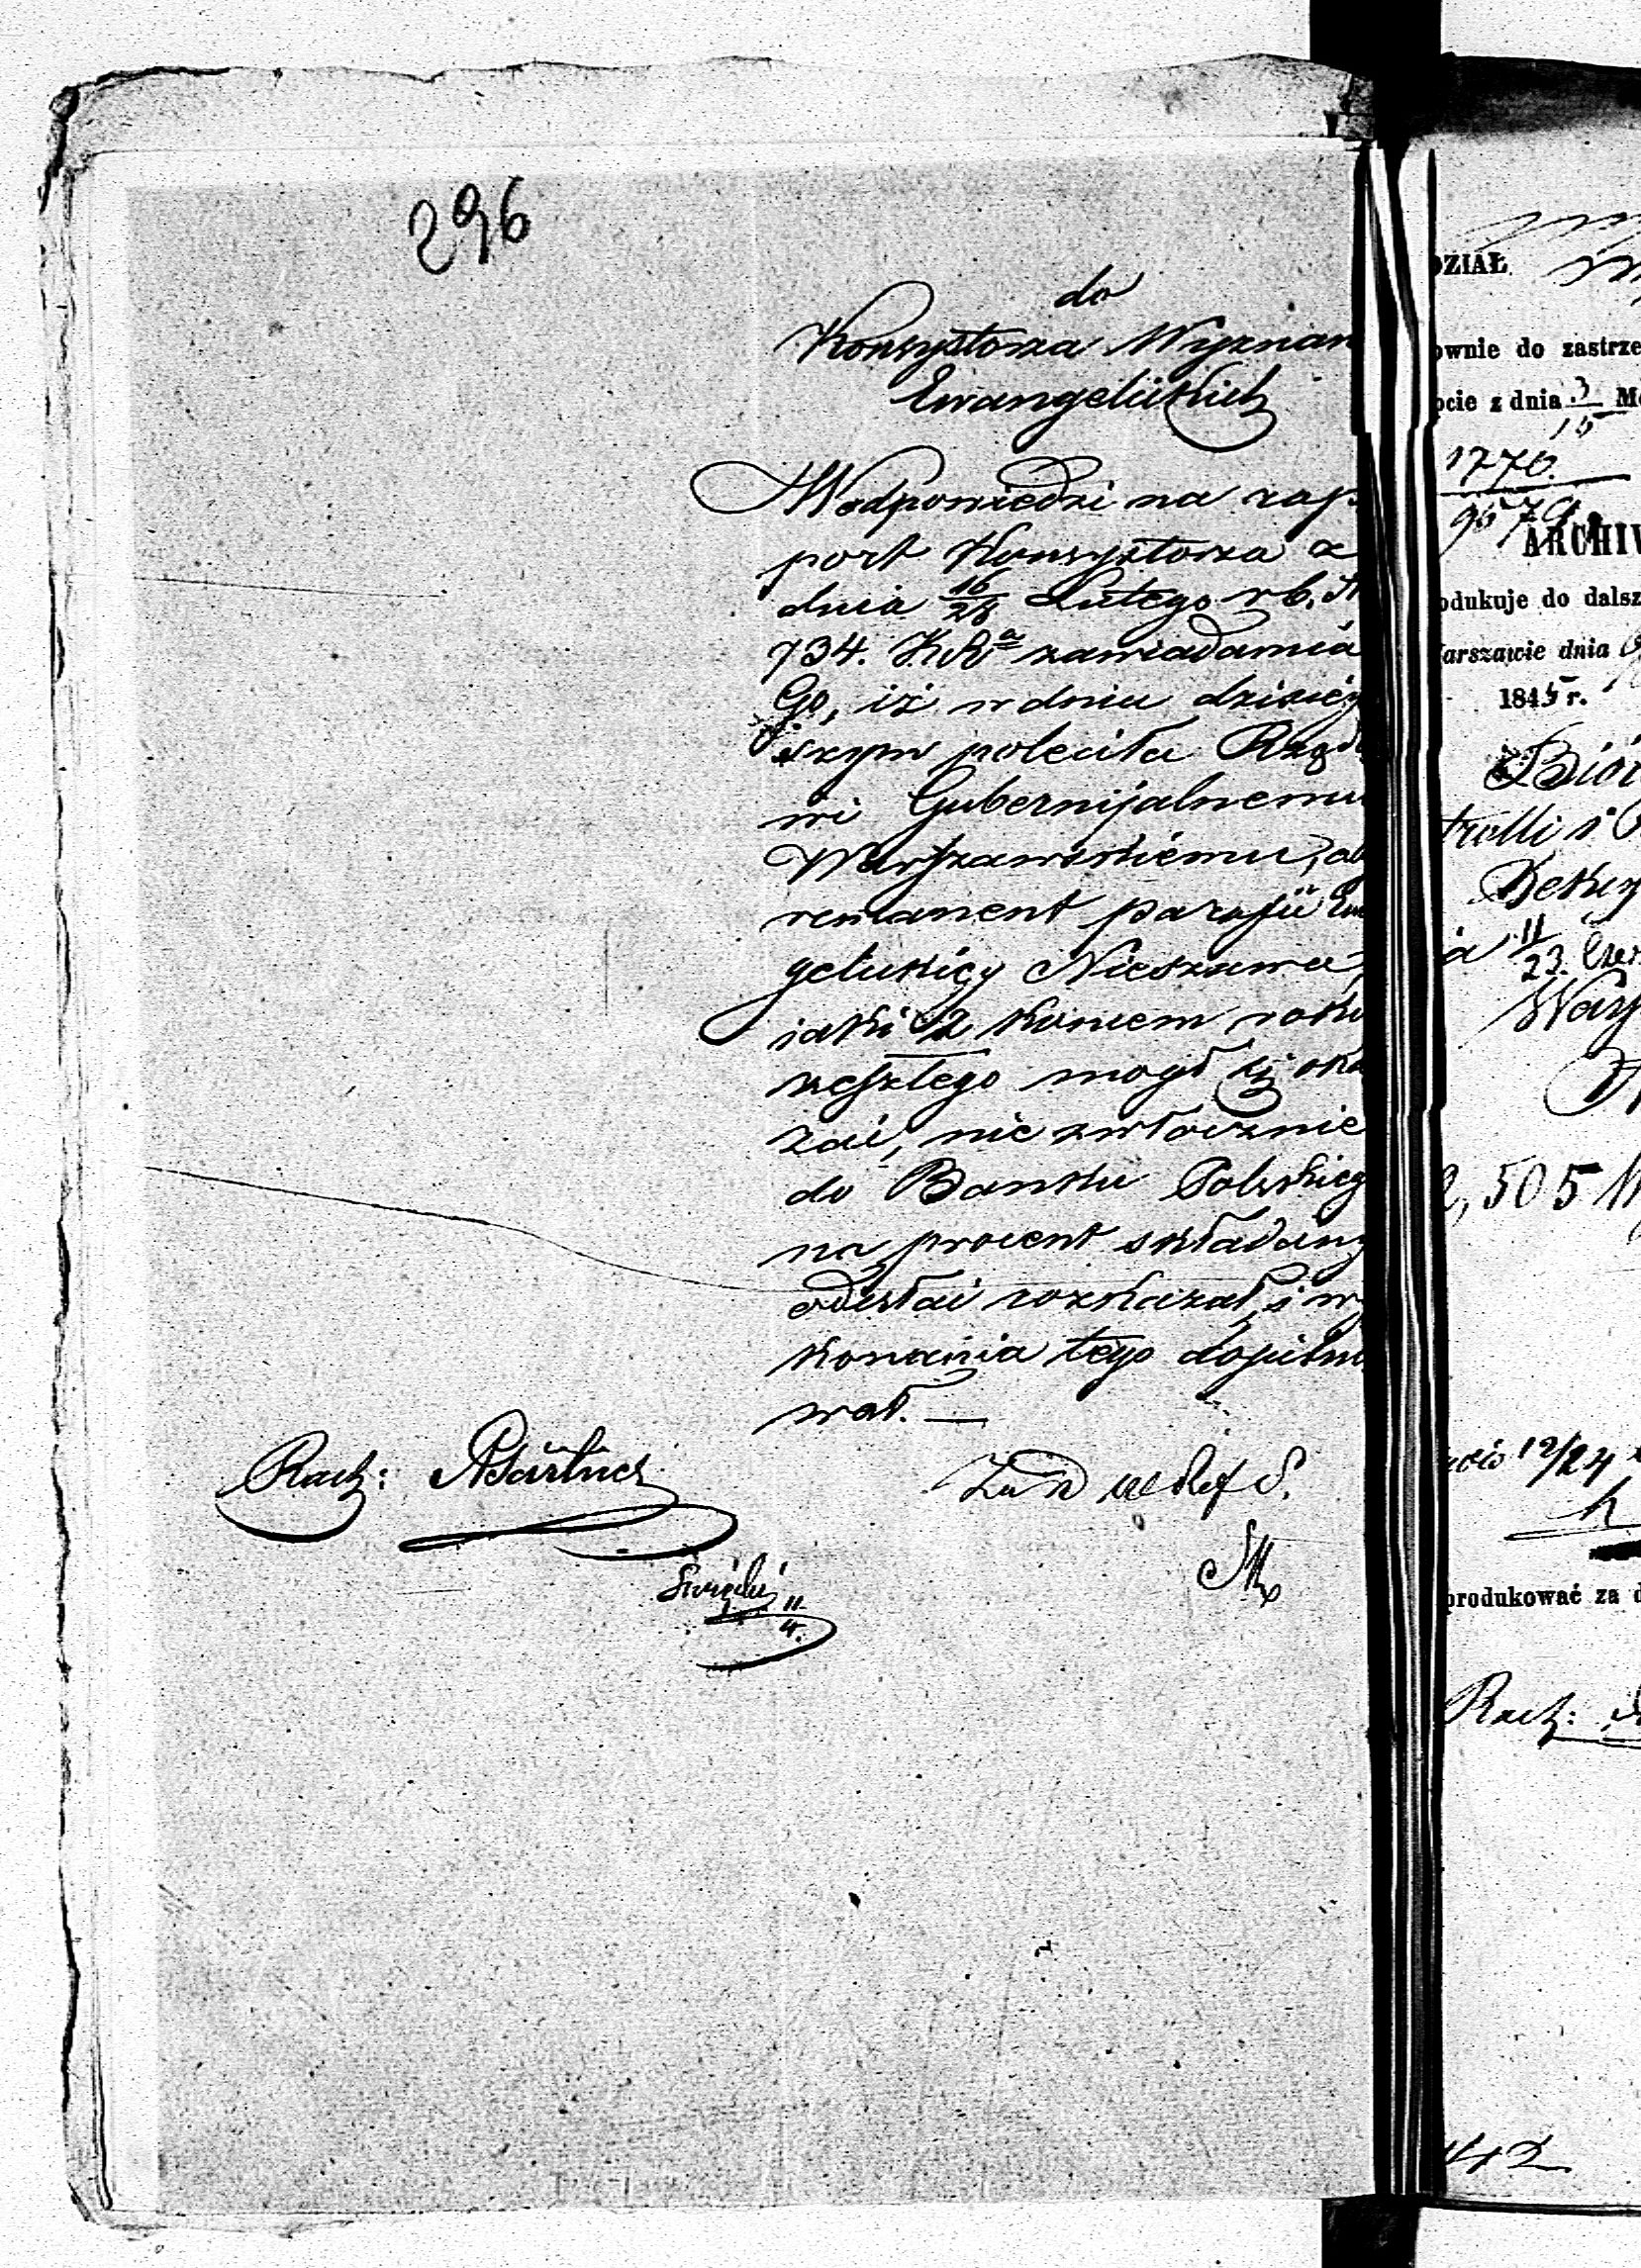 296
do
Konsystorza Wyznań
Ewangelickich
W odpowiedzi na rap-
port Konsystorza z
dnia 16/28 Lutego r b. N
734. KRa zawiadamia
Go, iż w dniu dzisiéj
szym poleciła Rządo
wi Gubernijalnemu
Warszawskiému, ab
remanent parafii Ewa
gelickiéj Nieszawa,
iaki z końcem roku
zeszłego mógł się oka
zać, nie zwłocznie
do Banku Polskieg
na procent składany
odesłać rozkazał, i wy
konania tego dopilno
wał. —
Rach:
11/4.
DZIAŁ
ownie do zastrze
pcie z dnia 3/15 M
1770.
9579.
ARCHIW
odukuje do dalsz
arszawie dnia
1845 r.
Biór
trolli i
Dekuy
a 11/23. Czer
Wars
2,505
12/24
produkować za d
Rach:
442